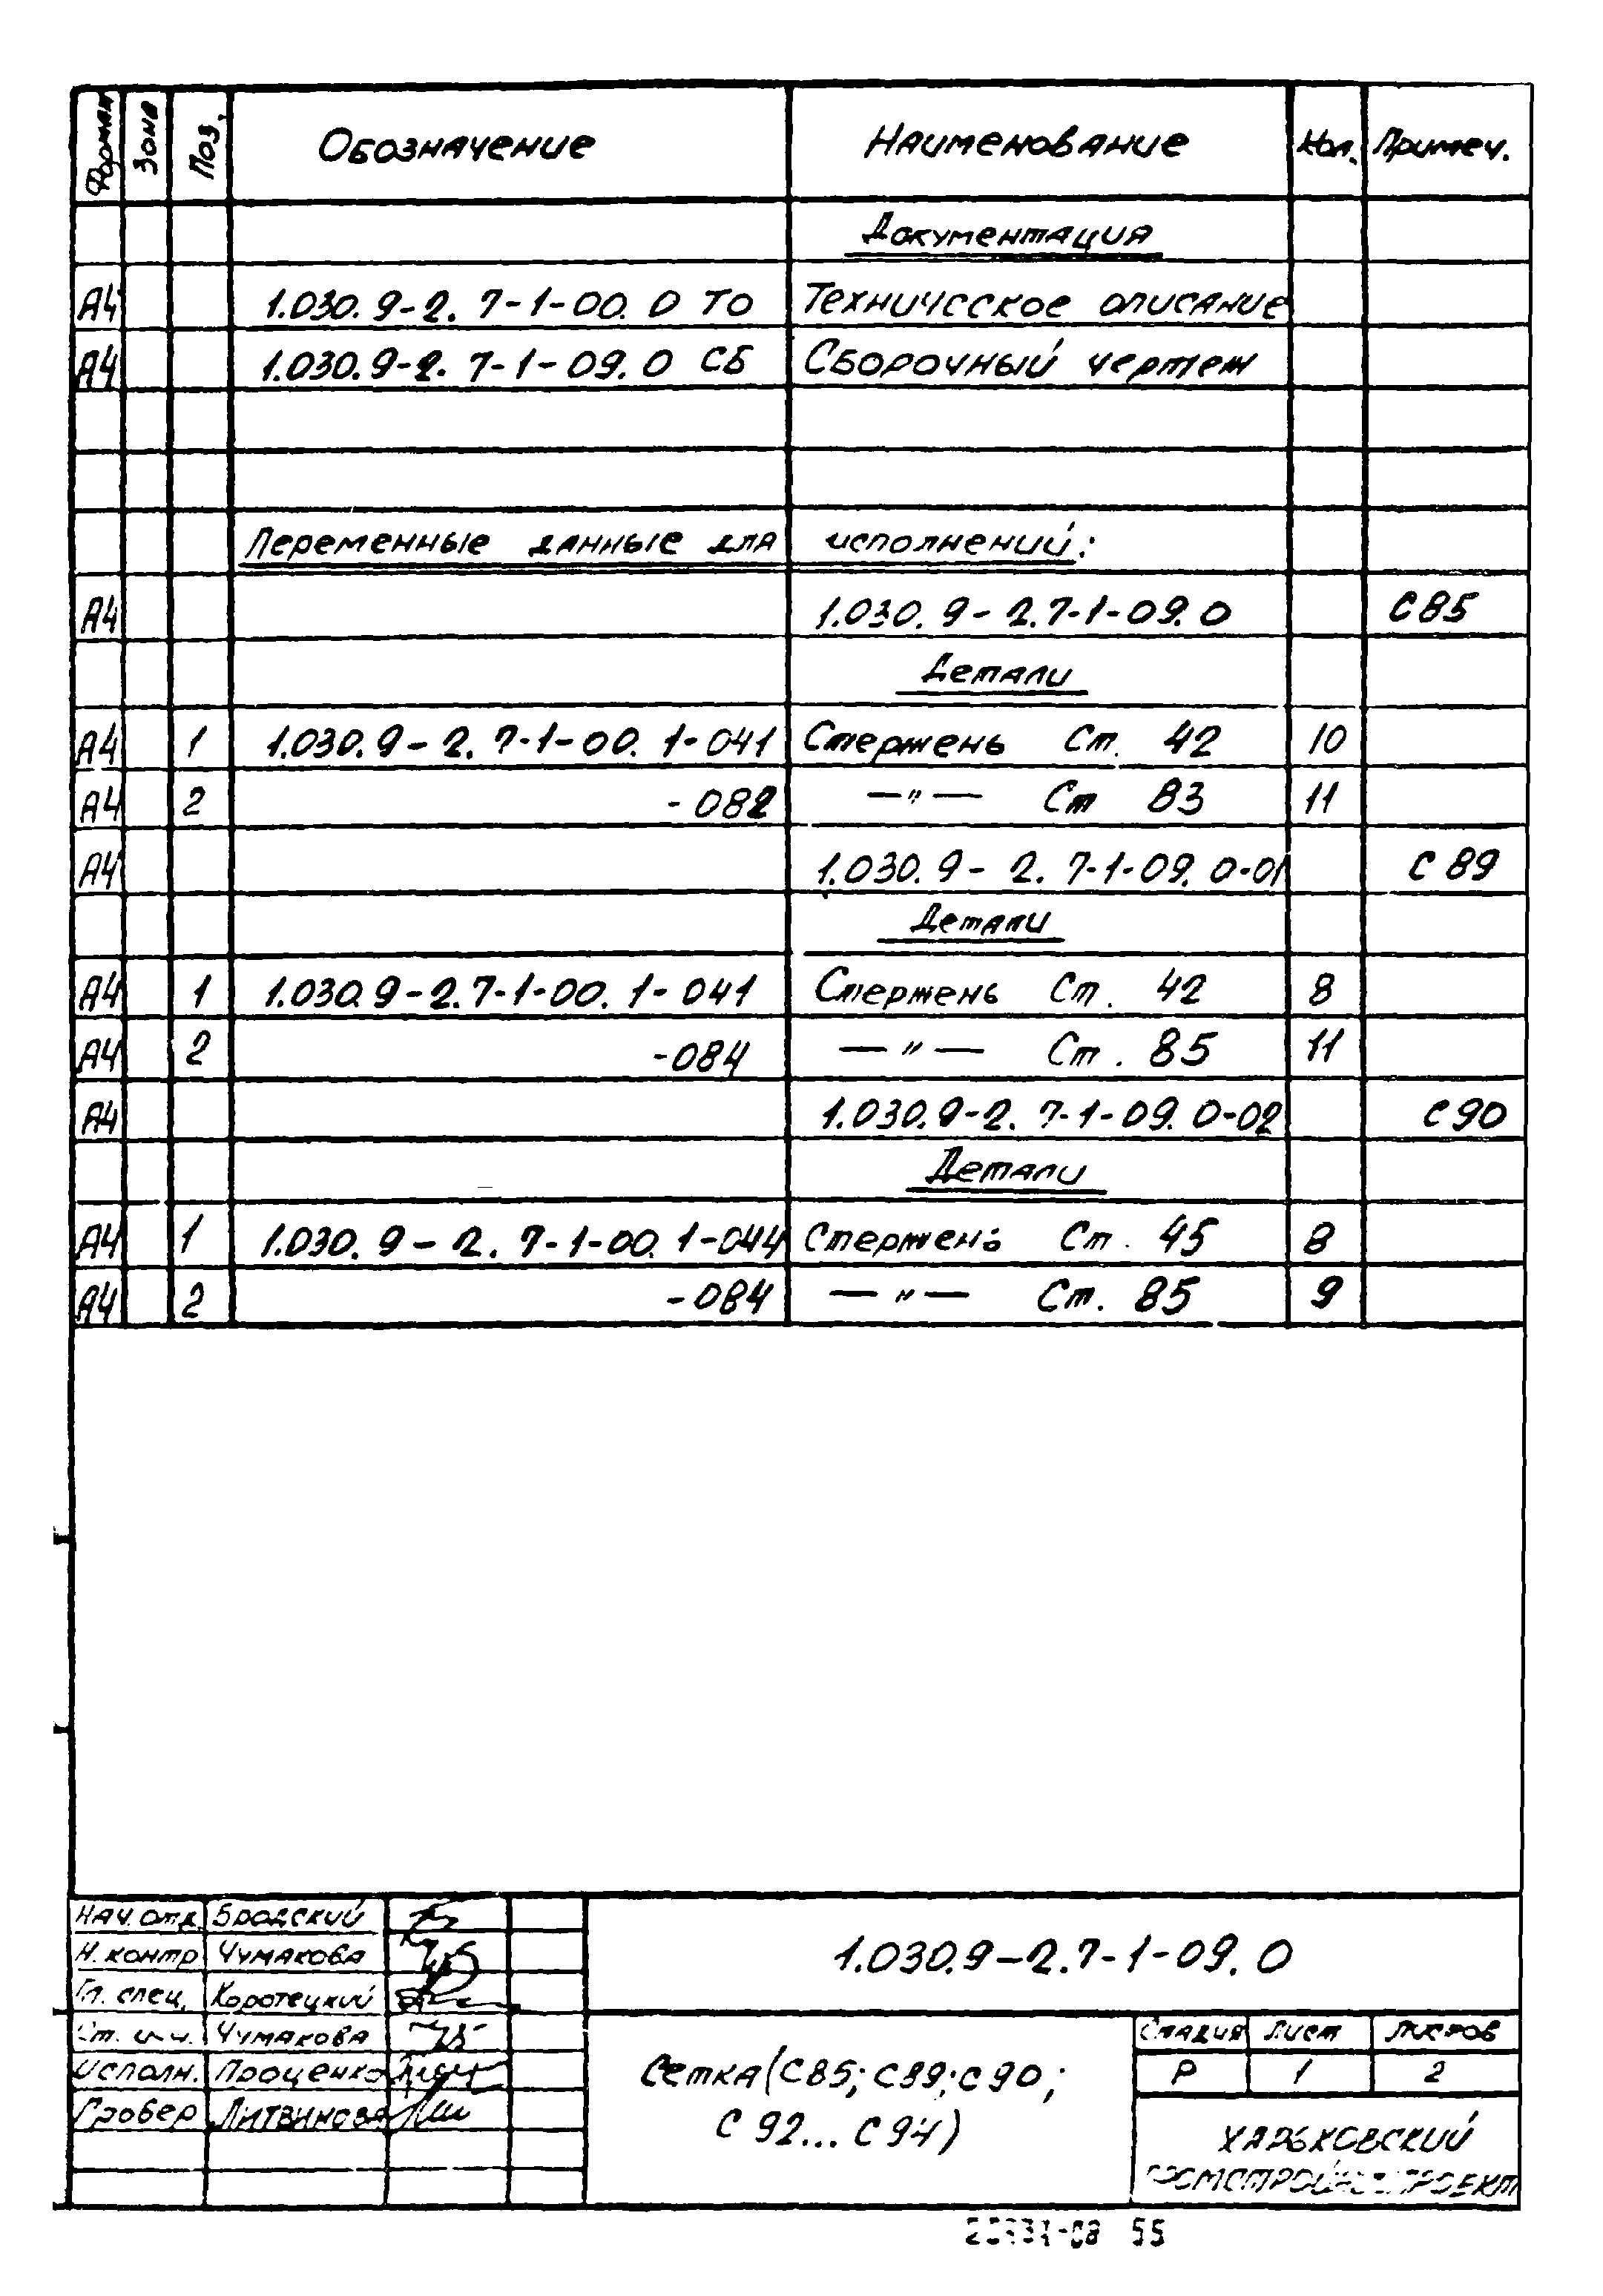 Формат Зона Поз. Обозначение Наименование Кол. Примеч.
Документация
А4 1.030.9-2.7-1-00.0 ТО Техническое описание
А4 1.030.9-2.7-1-09.0 СБ Сборочный чертеж
Переменные данные для исполнений:
А4 1.030.9-2.7-1-09.0 С85
Детали
А4 1 1.030.9-2.7-1-00.1-041 Стержень Ст. 42 10
А4 2 -082 —〃— Ст 83 11
А4 1.030.9-2.7-1-09.0-01 С89
Детали
А4 1 1.030.9-2.7-1-00.1-041 Стержень Ст. 42 8
А4 2 -084 —〃— Ст. 85 11
А4 1.030.9-2.7-1-09.0-02 С90
Детали
А4 1 1.030.9-2.7-1-00.1-044 Стержень Ст. 45 8
А4 2 -084 —〃— Ст. 85 9
Нач. отд. Бродский
Н. контр Чумакова
Гл. спец. Коротецкий
Ст. инж. Чумакова
Исполн. Проценко
Провер Литвинова
1.030.9-2.7-1-09.0
Сетка (С85; С89; С90;
С92...С94)
Стадия Лист Листов
Р 1 2
Харьковский
55